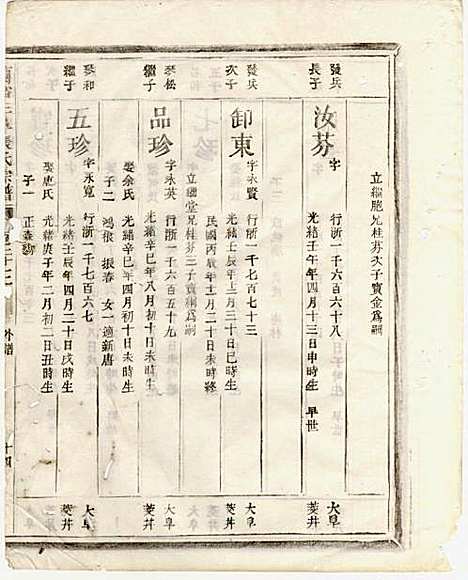 立繼胞兄桂芬次子寶金為嗣
發兵
長子
汝芬
字 行浙一千六百六十八
光緒壬午年四月十三日申時生 早世
大阜
菱井
發兵
次子
卸東
字永賢 行浙一千七百七十三
光緒壬辰年十二月二十三日巳時生
民國丙戌年十二月二十日未時終
大阜
菱井
立繼堂兄桂芬三子寶烟為嗣
琴松
繼子
品珍
字永英 行浙一千六百五十九
光緒辛巳年八月初十日未時生
娶余氏 光緒辛巳年四月初十日未時生
子二 鴻根 振春 女一適新唐
大阜
菱井
琴和
繼子
五珍
字永寬 行浙一千七百六七
光緒壬辰年四月二十日戌時生
娶應氏 光緒庚子年二月初二日丑時生
子一 正春
大阜
菱井
張氏宗譜
外譜
十四